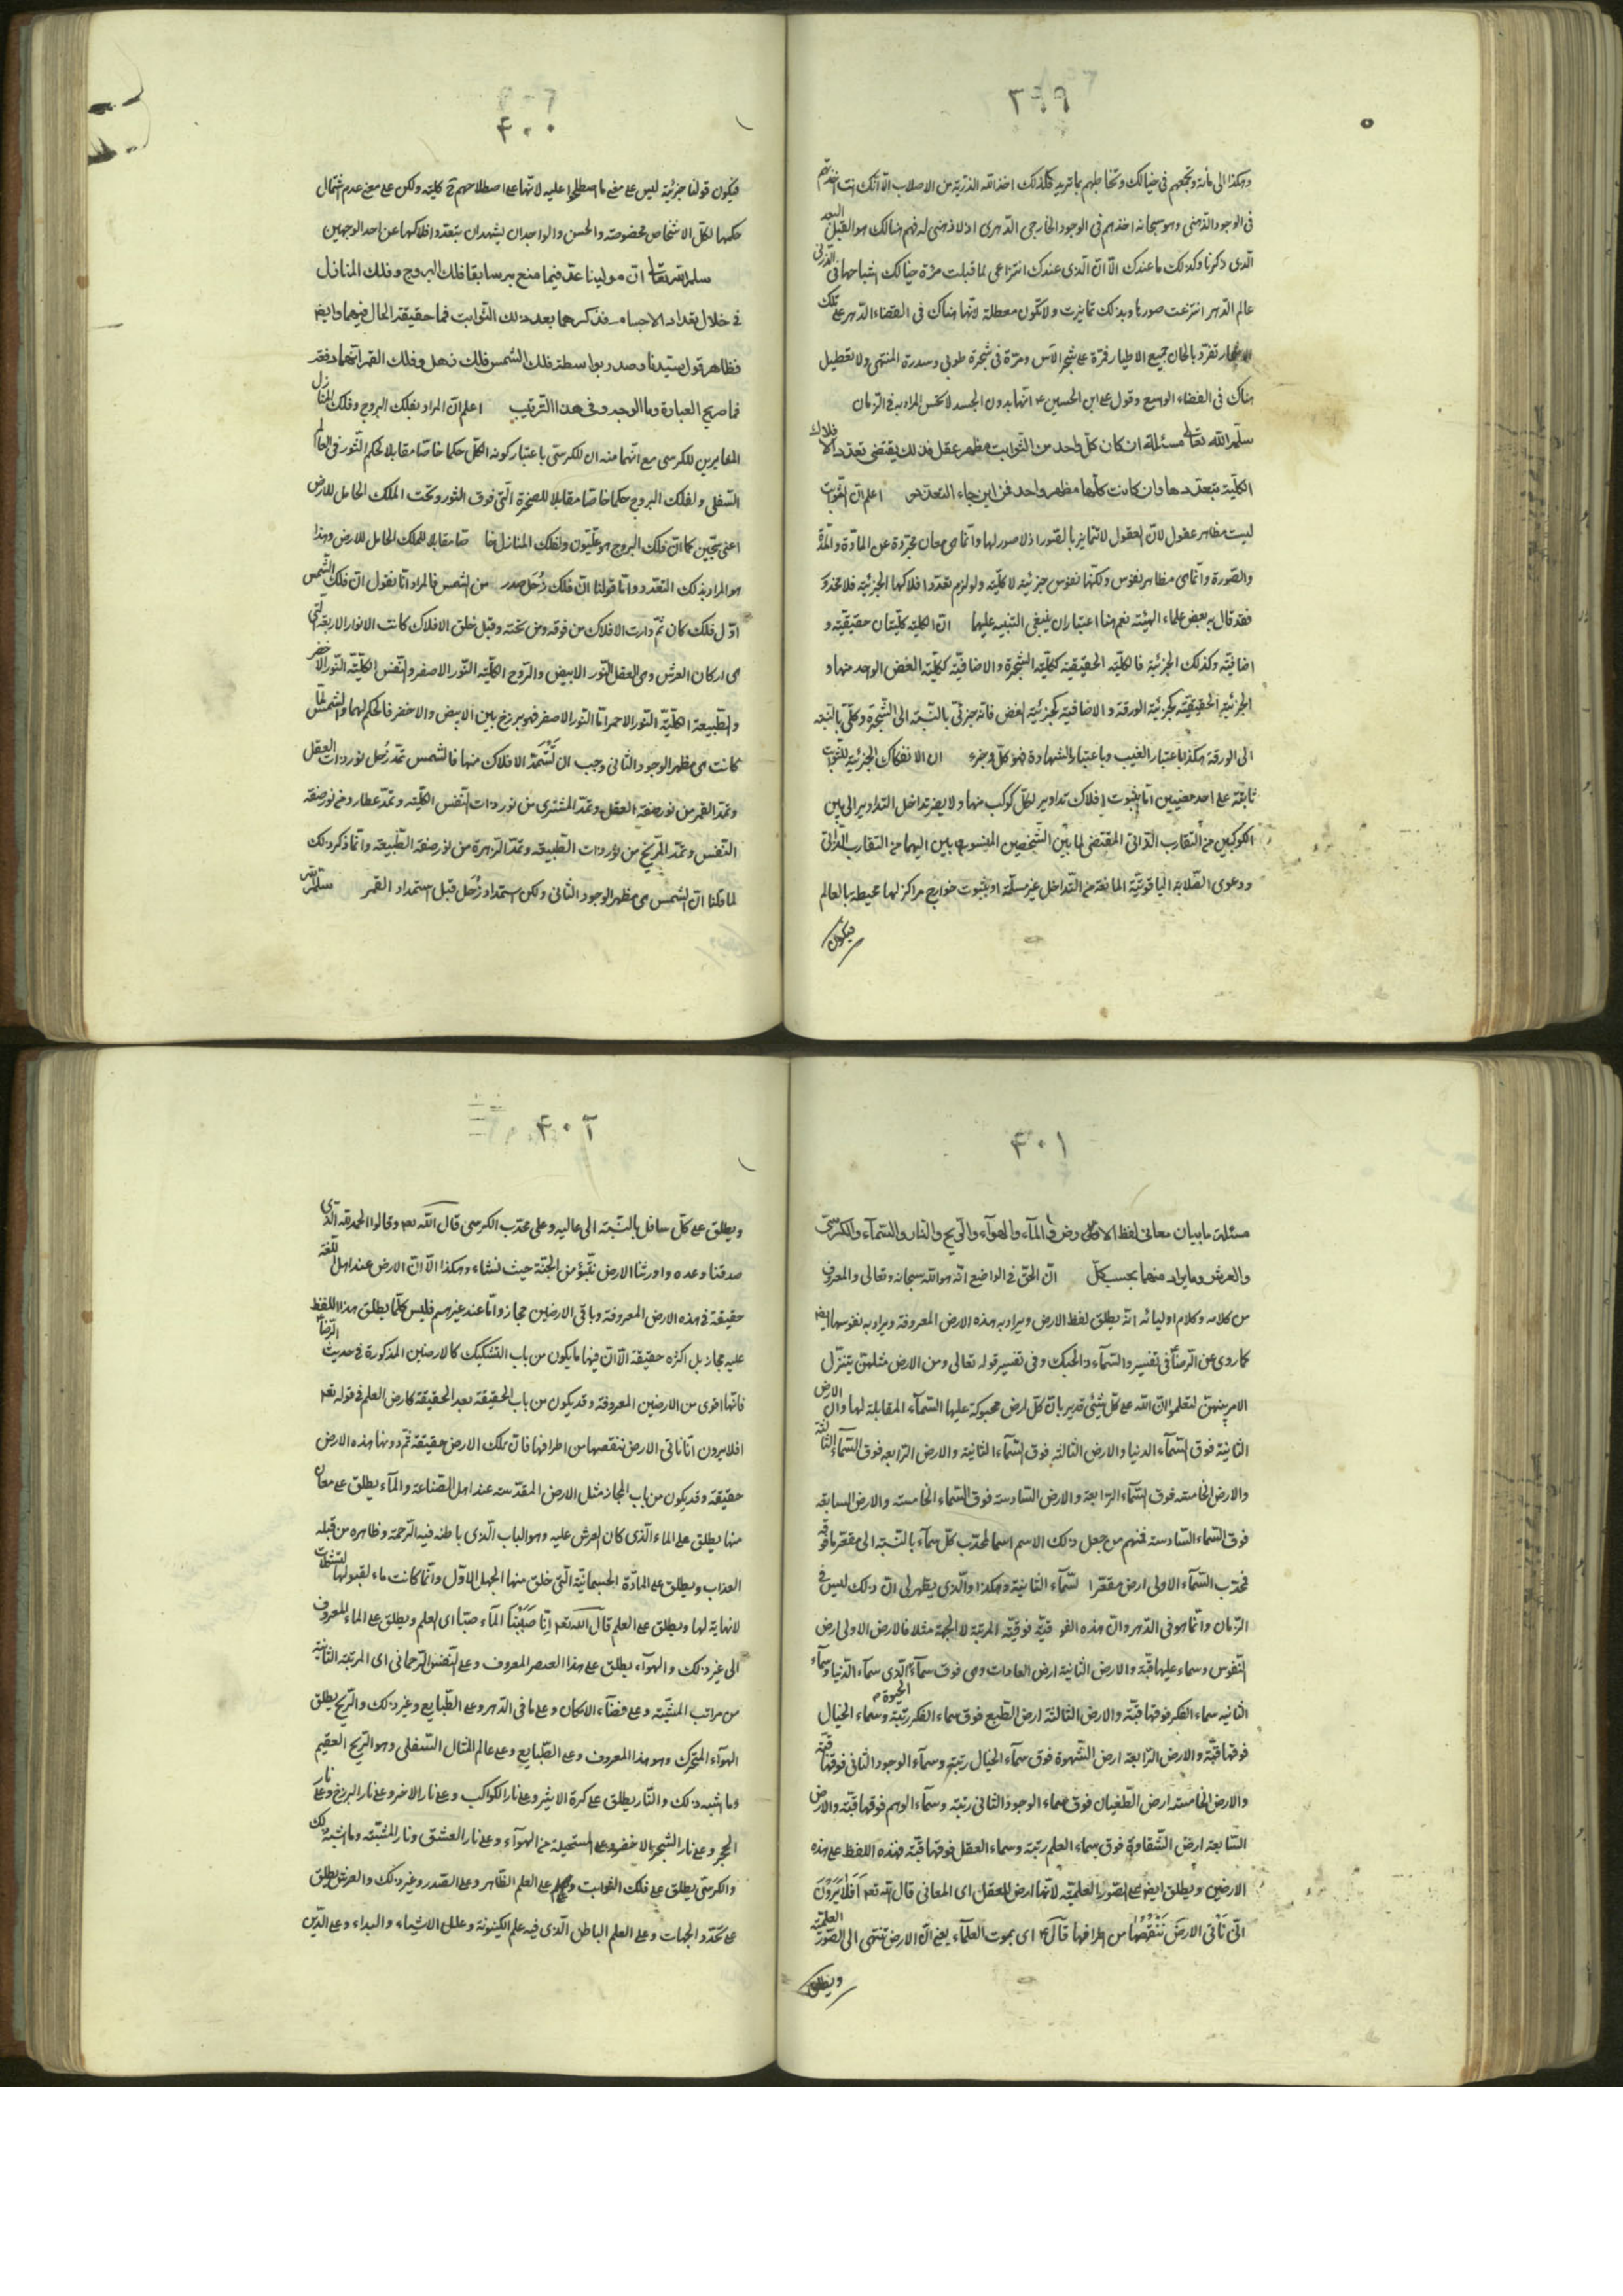 ٣٩٩
وهكذا الى مأنة وتجمعهم فى خيالك وتخاطبهم بما تريد فكذلك اخذ الله الذرية من الاصلاب الا انك انت اخذتهم
فى الوجود الذهنى وهو سبحانه اخذهم فى الوجود الخارجى الدهرى اذ لا ذهنى له فهم هنالك هو القبل البعد
الذى ذكرنا وكذلك ما عندك الا ان الذى عندك انتزاعى لما قبلت مرءة خيالك اشباحها فى الذر فى
عالم الدهر انتزعت صورها وبذلك تمايزت ولا تكون معطلة لانها هناك فى الفضاء الدهر على تلك
الاشجار تغرد بالحان جميع الاطيار فمرة على شجر الآس ومرة فى شجرة طوبى وسدرة المنتهى ولا تعطيل
هناك فى الفضاء الوسيع وقول على ابن الحسين ع انها بدون الجسد لا تحس المراد به فى الزمان
سلمه الله تعالى مسئلة ان كان كل واحد من الثوابت مظهر عقل فذلك يقتضى تعدد الافلاك
الكلية بتعددها وان كانت كلها مظهر واحد فمن اين جاء التعدد اعلم ان الثوابت
ليست مظاهر عقول لان العقول لا تتمايز بالصور اذ لا صور لها وانما هى معان مجردة عن المادة والمدة
والصورة وانما هى مظاهر نفوس ولكنها نفوس جزئية لا كلية ولو لزم تعدد افلاكها الجزئية فلا محذور
فقد قال به بعض علماء الهيئة نعم هنا اعتباران ينبغى التنبيه عليهما ان الكلية كليتان حقيقية و
اضافية وكذلك الجزئية فالكلية الحقيقية ككلية الشجرة والاضافية ككلية الغصن الواحد منها و
الجزئية الحقيقية كجزئية الورقة والاضافية كجزئية الغصن فانه جزئى بالنسبة الى الشجرة وكلى بالنسبة
الى الورقة هكذا باعتبار الغيب وباعتبار الشهادة فهو كل وجزء ان الانفكاك الجزئية للثوابت
ثابتة على احد معنيين اما بثبوت افلاك تداوير لكل كوكب منها ولا يضر تداخل التداوير الى بين
الكوكبين من التقارب الذاتى المقتضى لما بين الشخصين المنسوبين اليهما من التقارب الذاتى
ودعوى الصلابة الياقوتية المانعة من التداخل غير مسلمة او بثبوت خوارج مراكز لها محيطة بالعالم
فيكون
٤٠٠
فيكون قولنا جزئية ليس على معنى ما اصطلحوا عليه لانها على اصطلاحهم فى كلية ولكن على معنى عدم اشتمال
حكمها لكل الاشخاص مخصوصة والحس والواجدان يشهدان بتعدد افلاكها عن احد الوجهين
سلمه الله تعالى ان مولينا عد فيما منع به سابقا فلك البروج وفلك المنازل
فى خلال تعداد الاجسام فذكرهما بعد ذلك الثوابت فما حقيقة الحال فيهما وايضا
فظاهر قول سيدنا وصدر بواسطة فلك الشمس فلك زحل وفلك القمر انهما دفعة
فما صريح العبارة وما الوجه وفى هذا الترتيب اعلم ان المراد بفلك البروج وفلك المنازل
المغايرين للكرسى مع انهما منه ان للكرسى باعتبار كونه الكل حكما خاصا مقابلا لحكم الثور فى العالم
السفلى ولفلك البروج حكما خاصا مقابلا للصخرة التى فوق الثور وتحت الملك الحامل للارض
اعنى سجين كما ان فلك البروج هو عليون ولفلك المنازل خاصا مقابلا للملك الحامل للارض وهذا
هو المراد بذلك التعدد واما قولنا ان فلك زحل صدر من الشمس فالمراد انا نقول ان فلك الشمس
اول فلك كان ثم دارت الافلاك من فوقه ومن تحته وقبل خلق الافلاك كانت الانوار الاربعة التى
هى اركان العرش وهى العقل النور الابيض والروح الكلية النور الاصفر والنفس الكلية النور الاخضر
والطبيعة الكلية النور الاحمر اما النور الاصفر فهو برزخ بين الابيض والاخضر فالحكم لهما والشمس لما
كانت هى مظهر الوجود الثانى وجب ان تستمد الافلاك منها فالشمس تمد زحل نور ذات العقل
وتمد القمر من نور صفة العقل وتمد المشترى من نور ذات النفس الكلية وتمد عطارد من نور صفة
النفس وتمد المريخ من نور ذات الطبيعة وتمد الزهرة من نور صفة الطبيعة وانما ذكر ذلك
لما قلنا ان الشمس هى مظهر الوجود الثانى ولكن استمداد زحل قبل استمداد القمر سلمه الله
٤٠١
مسئلة ما بيان معانى لفظ الارض فى المآء والهوآء والريح والنار والسمآء والكرسى
والعرش وما يراد منهما بحسب كل ان الحق فى الواضع انه هو الله سبحانه وتعالى والمعروف
من كلامه وكلام اوليائه انه يطلق لفظ الارض ويراد به هذه الارض المعروفة ويراد به نفوسها ايضا
كما روى عن الرضا فى تفسير والسمآء ذات الحبك وفى تفسير قوله تعالى ومن الارض مثلهن يتنزل
الامر بينهن لتعلموا ان الله على كل شيئ قدير بان كل ارض محبوكة عليها السمآء المقابلة لها وان الارض
الثانية فوق السمآء الدنيا والارض الثالثة فوق السمآء الثانية والارض الرابعة فوق السمآء الثالثة
والارض الخامسة فوق السمآء الرابعة والارض السادسة فوق السمآء الخامسة والارض السابعة
فوق السمآء السادسة فمنهم من جعل ذلك الاسم اسما لمحدب كل سمآء بالنسبة الى مقعر ما فوقه
فمحدب السمآء الاولى ارض مقعر السمآء الثانية وهكذا والذى يظهر لى ان ذلك ليس فى
الزمان وانما هو فى الدهر وان هذه الفوقية فوقية المرتبة لا الجهة مثلا فالارض الاولى ارض
النفوس وسماء عليها قبة والارض الثانية ارض العادات وهى فوق سمآء الحيوة الذى سمآء الدنيا وسمآء
الثانية سماء الفكر فوقها قبة والارض الثالثة ارض الطبع فوق سماء الفكر رتبة وسماء الخيال
فوقها قبة والارض الرابعة ارض الشهوة فوق سمآء الخيال رتبة وسمآء الوجود الثانى فوقها قبة
والارض الخامسة ارض الطغيان فوق سماء الوجود الثانى رتبة وسمآء الوهم فوقها قبة والارض
السابعة ارض الشقاوة فوق سماء العلم رتبة وسماء العقل فوقها قبة فهذه اللفظ على هذه
الارضين ويطلق ايضا على الصور العلمية لانها ارض للعقل اى المعانى قال الله تعم اَفَلا يَرَوْنَ
انّى نَأتى الارضَ نَنْقُصُها من اطرافها قال ع اى بموت العلمآء يعنى ان الارض تنتهى الى الصور العلمية
ويطلق
٤٠٢
ويطلق على كل سافل بالنسبة الى عاليه وعلى محدب الكرسى قال الله تعم وقالوا الحمد لله الذى
صدقنا وعده واورثنا الارض نتبوء من الجنة حيث نشاء وهكذا الا ان الارض عند اهل اللغة
حقيقة فى هذه الارض المعروفة وباقى الارضين مجاز واما عند غيرهم فليس كلما يطلق هذا اللفظ
عليه مجاز بل اكثره حقيقة الا ان فيها ما يكون من باب التشكيك كالارضين المذكورة فى حديث الرضا
فانها اقوى من الارضين المعروفة وقد يكون من باب الحقيقة بعد الحقيقة كارض العلم فى قوله تعم
افلا يرون انا ناتى الارض ننقصها من اطرافها فان تلك الارض حقيقة ثم دونها هذه الارض
حقيقة وقد يكون من باب المجاز مثل الارض المقدسة عند اهل الصناعة والمآء يطلق على معان
منها يطلق على الماء الذى كان العرش عليه وهو الباب الذى باطنه فيه الرحمة وظاهره من قبله
العذاب ويطلق على المادة الجسمانية التى خلق منها الجهل الاول وانما كانت ماء لقبولها لتشكلات
لا نهاية لها ويطلق على العلم قال الله تعم اِنّا صَبَبْنَا المآء صبّا اى العلم ويطلق على الماء المعروف
الى غير ذلك والهوآء يطلق على هذا العنصر المعروف وعلى النفس الرحمانى اى المرتبة الثانية
من مراتب المشية وعلى فضآء الامكان وعلى ما فى الدهر وعلى الطبايع وغير ذلك والريح يطلق
الهوآء المتحرك وهو هذا المعروف وعلى الطبايع وعلى عالم المثال السفلى وهو الريح العقيم
وما شبه ذلك والنار يطلق على كرة الاثير وعلى نار الكواكب وعلى نار الاخر وعلى نار البرزخ وعلى نار
الحجر وعلى نار الشجر الاخضر وعلى المستحيلة من الهوآء وعلى نار العشق ونار المشية وما اشبه ذلك
والكرسى يطلق على فلك الثوابت وعلى العلم الظاهر وعلى الصدر وغير ذلك والعرش يطلق
على محدد الجهات وعلى العلم الباطن الذى فيه علم الكينونة وعلل الاشياء والبداء وعلى الدين